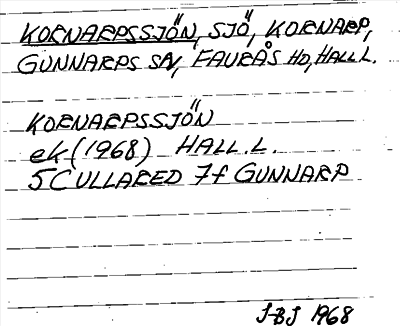 KORNARPSSJÖN, SJÖ, KORNARP,
GUNNARPS SN, FAURÅS HD, HALL L.
KORNARPSSJÖN
ek (1968) HALL. L.
5C ULLARED 7f GUNNARP
1968